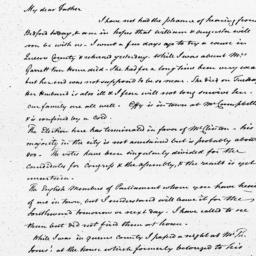 My dear Father
I have not had the pleasure of hearing from
Bedford today, & am in hopes that William & Augusta will
soon be with us. I went a few days ago to try a cause in
Queens County & returned yesterday. While I was about Mr.
died. She had for a long time been very
but her end was not supposed to be so near. She died on Tuesday
her Husband is also ill & I fear will not long survive her.
Our family are all well. is in town at Mr. Campbell's
& is confined by a cold.
The Election here has terminated in favor of Mr. Clinton - his
majority in the city is not ascertained but is probably about
The votes have been singularly divided for the
candidates for Congress & the assembly, & the result is yet
uncertain.
The English Members of Parliament whom you have heard
of are in town, but I understand will leave it for the
southward tomorrow or next day. I have called to see
them but did not find them at home.
While I was in queens county I passed a night at Mr.
Jones' at the house which formerly belonged to his